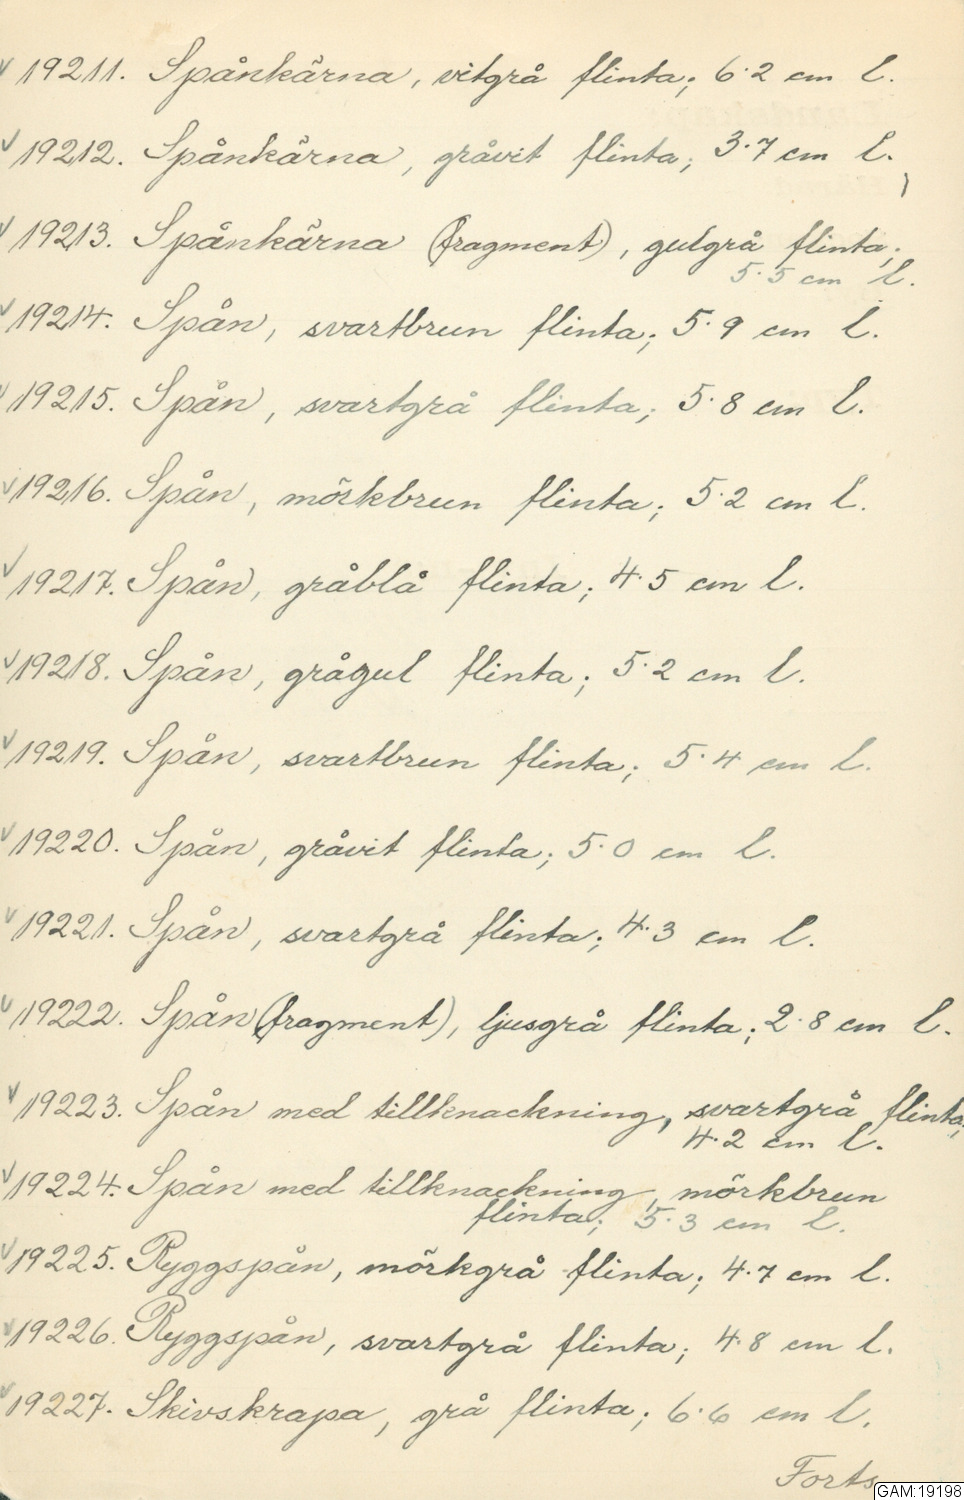 v 19211. Spånkärna, vitgrå flinta; 6.2 cm l.
v 19212. Spånkärna, gråvit flinta; 3.7 cm l.
v 19213. Spånkärna (fragment), gulgrå flinta;
5.5 cm l.
v 19214. Spån, svartbrun flinta; 5.9 cm l.
v 19215. Spån, svartgrå flinta; 5.8 cm l.
v 19216. Spån, mörkbrun flinta; 5.2 cm l.
v 19217. Spån, gråblå flinta; 4.5 cm l.
v 19218. Spån, grågul flinta; 5.2 cm l.
v 19219. Spån, svartbrun flinta; 5.4 cm l.
v 19220. Spån, gråvit flinta; 5.0 cm l.
v 19221. Spån, svartgrå flinta; 4.3 cm l.
v 19222. Spån (fragment), ljusgrå flinta; 2.8 cm l.
v 19223. Spån med tillknackning, svartgrå flinta;
4.2 cm l.
v 19224. Spån med tillknackning, mörkbrun
flinta; 5.3 cm l.
v 19225. Ryggspån, mörkgrå flinta; 4.7 cm l.
v 19226. Ryggspån, svartgrå flinta; 4.8 cm l.
v 19227. Skivskrapa, grå flinta; 6.6 cm l.
Forts
GAM:19198